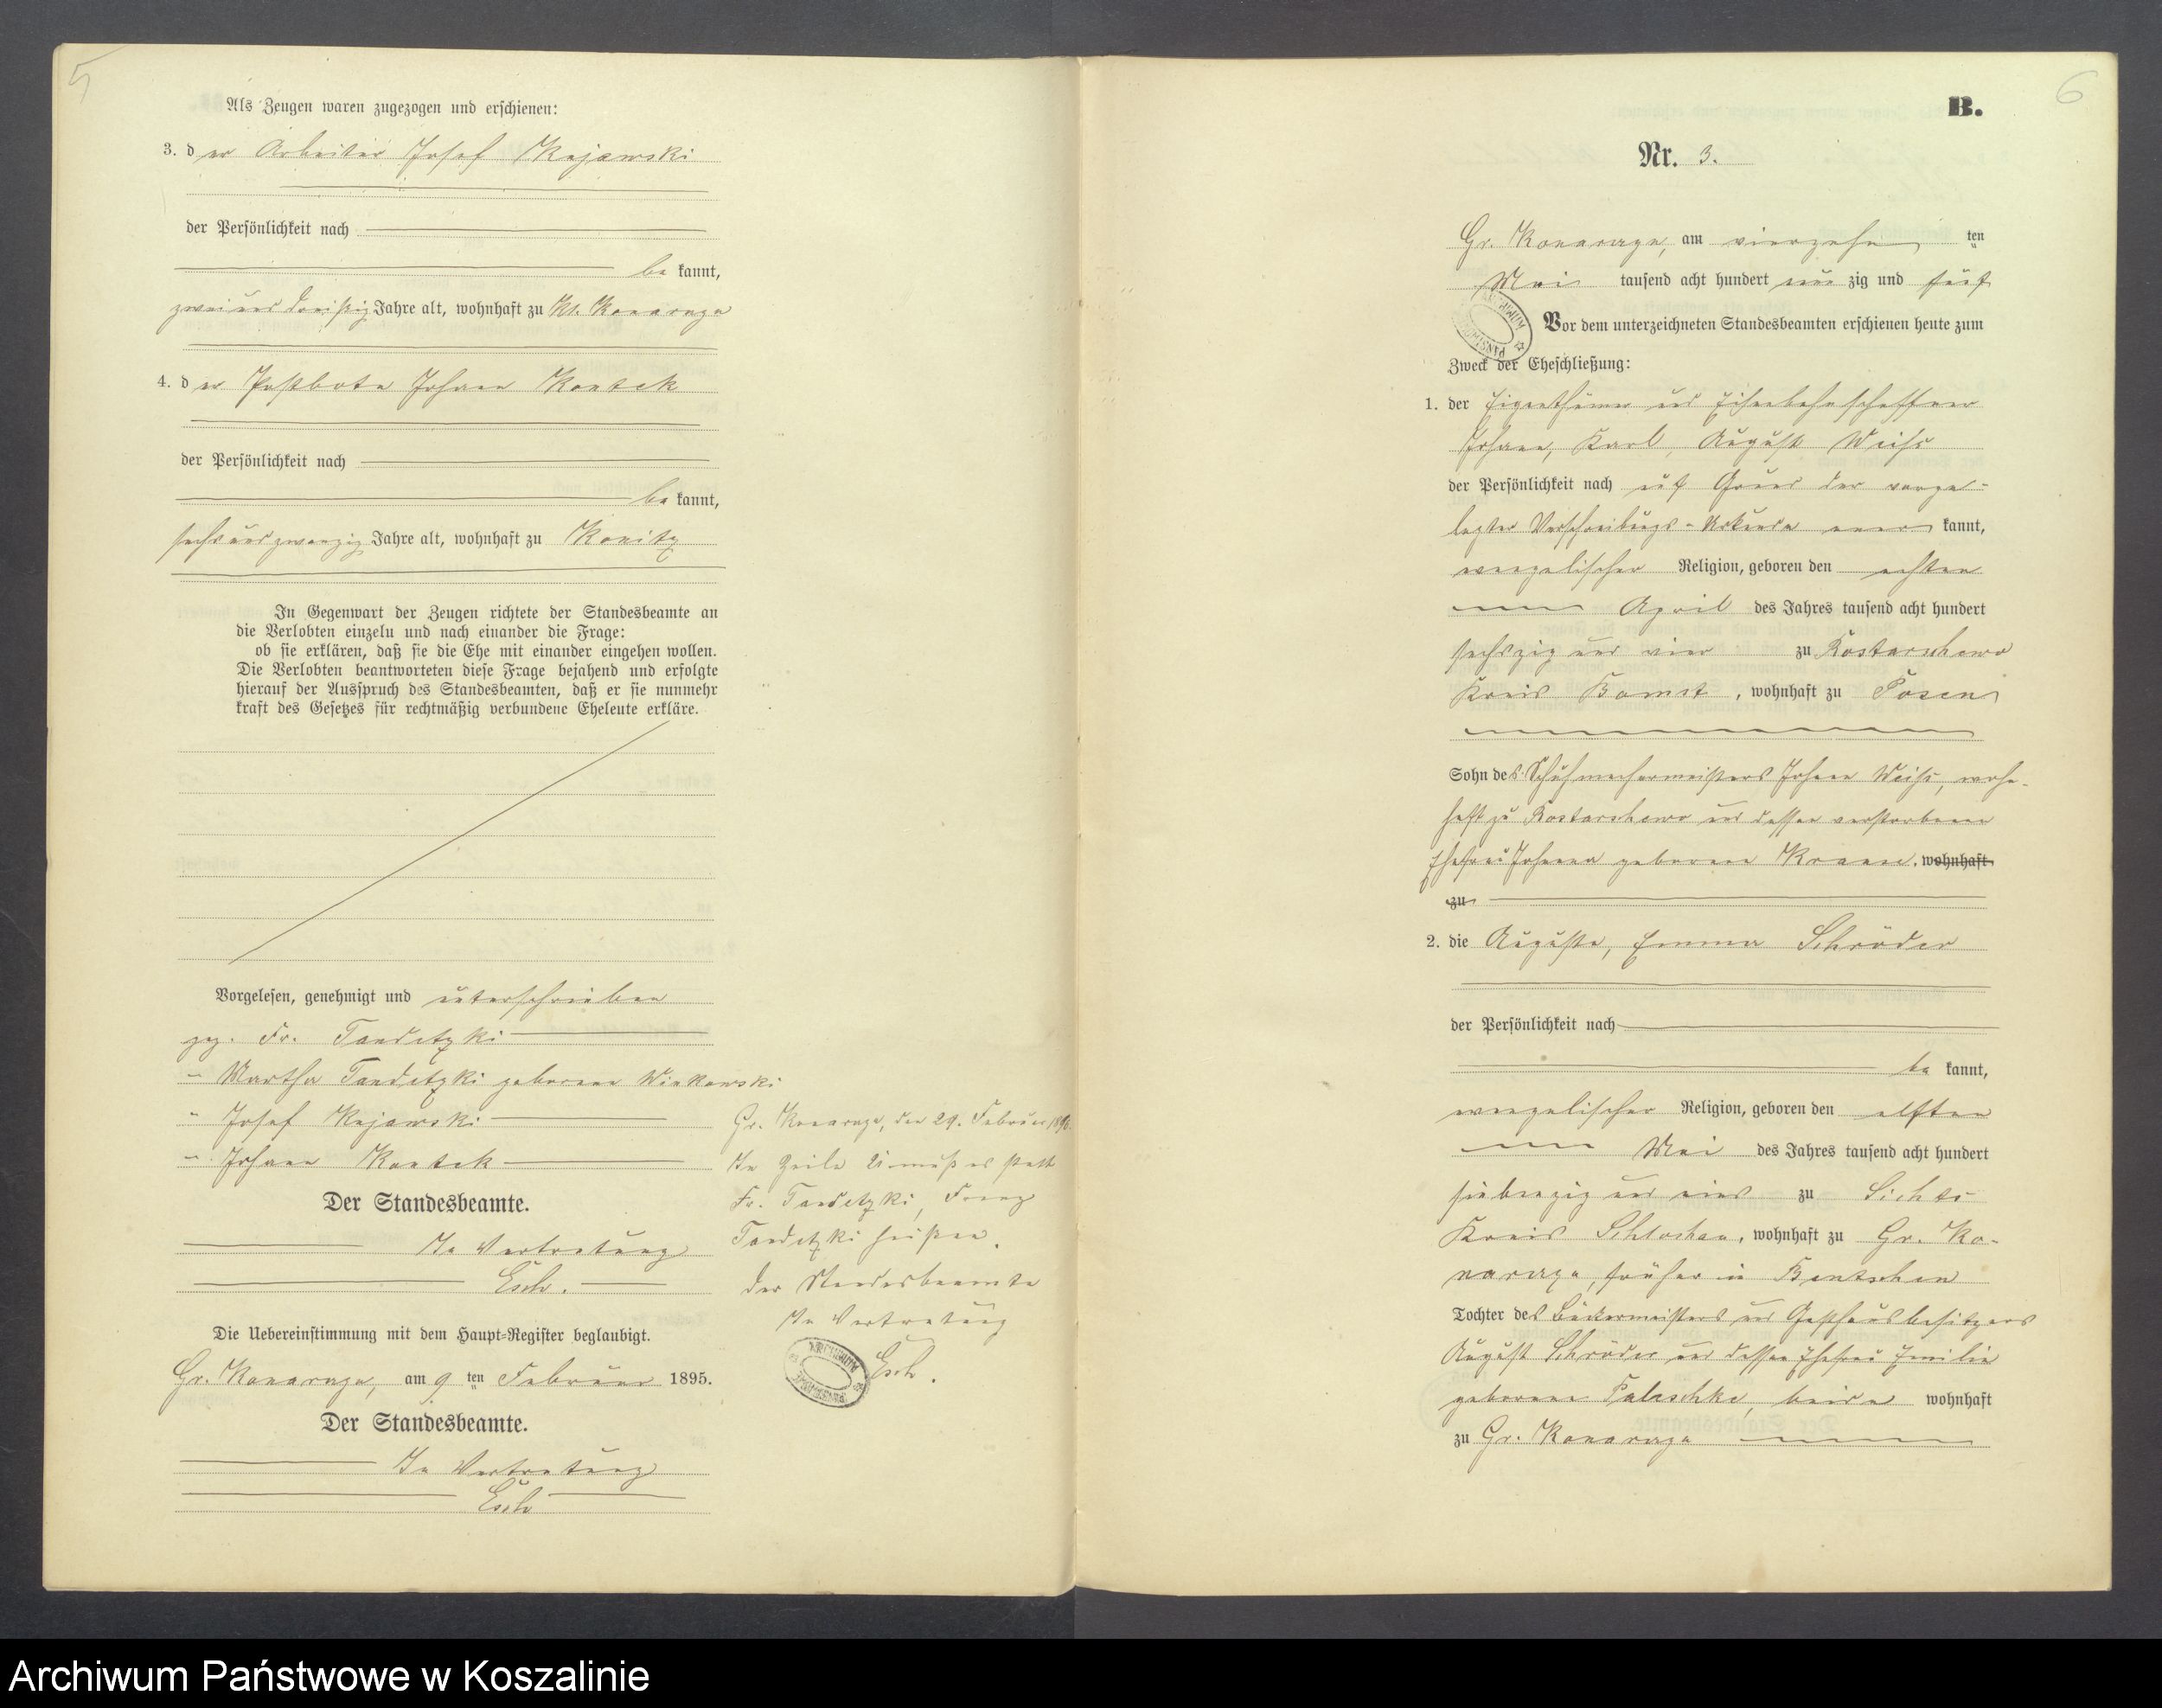 5
Als Zeugen waren zugezogen und erschienen:
3. der Arbeiter Josef Kujawski
der Persönlichkeit nach
bekannt,
zweiunddreißig Jahre alt, wohnhaft zu Kl. Konarzyn
4. der Postbote Johann Kontek
der Persönlichkeit nach
bekannt,
sechsundzwanzig Jahre alt, wohnhaft zu Konitz
In Gegenwart der Zeugen richtete der Standesbeamte an
die Verlobten einzeln und nach einander die Frage:
ob sie erklären, daß sie die Ehe mit einander eingehen wollen.
Die Verlobten beantworteten diese Frage bejahend und erfolgte
hierauf der Ausspruch des Standesbeamten, daß er sie nunmehr
kraft des Gesetzes für rechtmäßig verbundene Eheleute erkläre.
Vorgelesen, genehmigt und unterschrieben
gez. Fr. Tandetzki
" Martha Tandetzki geborene Winkowski
" Josef Kujawski
" Johann Kontek
Der Standesbeamte.
In Vertretung
Esch.
Die Uebereinstimmung mit dem Haupt-Register beglaubigt.
Gr. Konarzyn, am 9ten Februar 1895.
Der Standesbeamte.
In Vertretung
Esch
Gr. Konarzyn, den 29. Februar 1896.
In Zeile muß es statt
Fr. Tandetzki, Franz
Tandetzki heißen.
Der Standesbeamte
In Vertretung
Esch.
6
B.
Nr. 3.
Gr. Konarzyn, am vierzehnten
Mai tausend acht hundert neunzig und fünf
Vor dem unterzeichneten Standesbeamten erschienen heute zum
Zweck der Eheschließung:
1. der Eigenthümer und Eisenbahnschaffner
Johann, Karl, August Weiß
der Persönlichkeit nach auf Grund der vorge-
legten Verschreibungs-Urkunde anerkannt,
evangelischer Religion, geboren den achten
April des Jahres tausend acht hundert
sechszig und vier zu Kostarschewo
Kreis Bomst, wohnhaft zu Posen
Sohn des Schuhmachermeisters Johann Weiß, wohn-
haft zu Kostarschewo und dessen verstorbenen
Ehefrau Johanna geborene Krause. wohnhaft
zu
2. die Auguste, Emma Schröder
der Persönlichkeit nach
bekannt,
evangelischer Religion, geboren den elften
Mai des Jahres tausend acht hundert
siebenzig und eins zu Sichts
Kreis Schlochau, wohnhaft zu Gr. Ko-
narzyn, früher in Bentschen
Tochter des Bäckermeisters und Gasthausbesitzers
August Schröder und dessen Ehefrau Emilie
geborene Paleschke, beide wohnhaft
zu Gr. Konarzyn
Archiwum Państwowe w Koszalinie